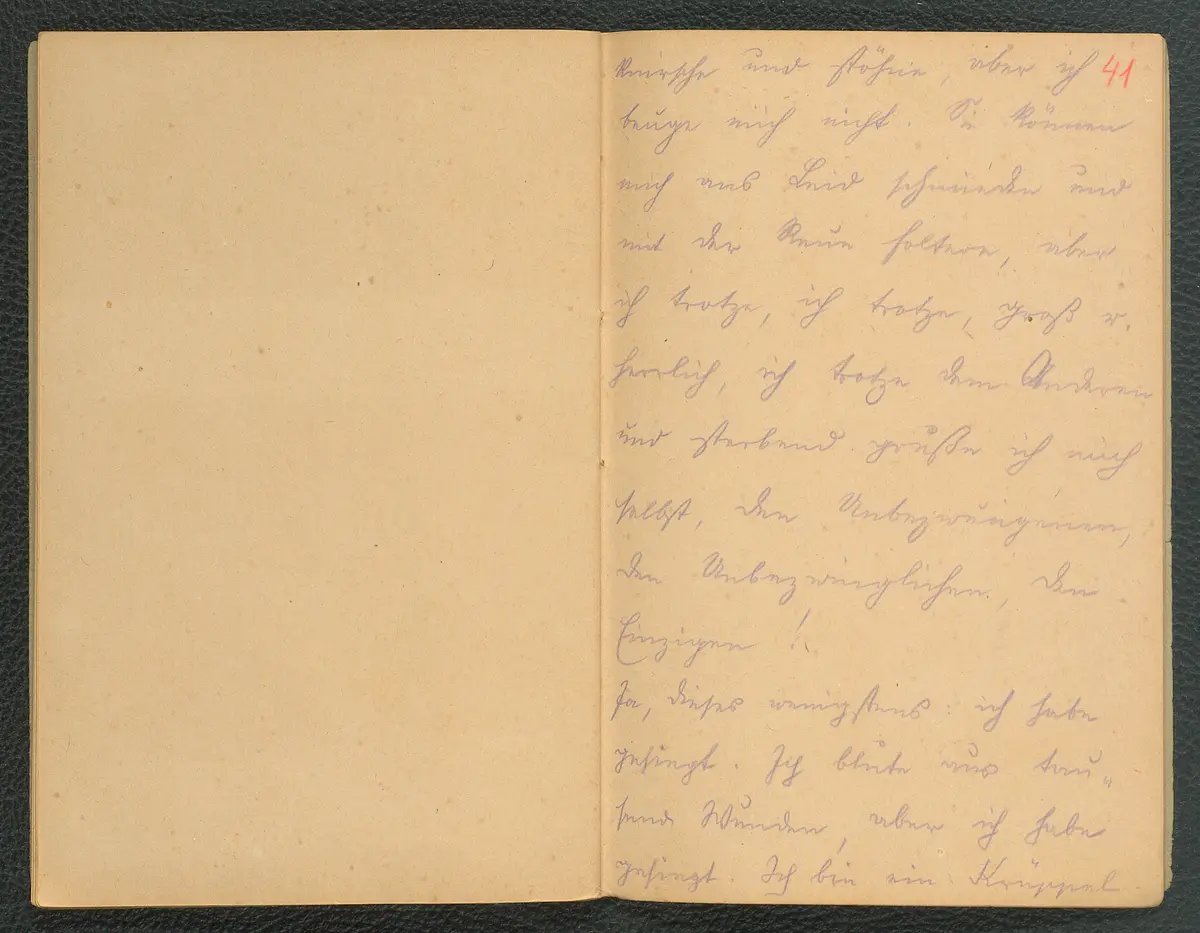 knirsche und stöhne, aber ich 41
beuge mich nicht. Sie können
mich ans Leid schmieden und
mit der Reue foltern, aber
ich trotze, ich trotze, groß u.
herrlich, ich trotze dem Anderen
und sterbend grüße ich mich
selbst, den Unbezwungenen,
den Unbezwinglichen, den
Einzigen!
Ja, dieses wenigstens: ich habe
gesiegt. Ich blute aus tau-
send Wunden, aber ich habe
gesiegt. Ich bin ein Krüppel